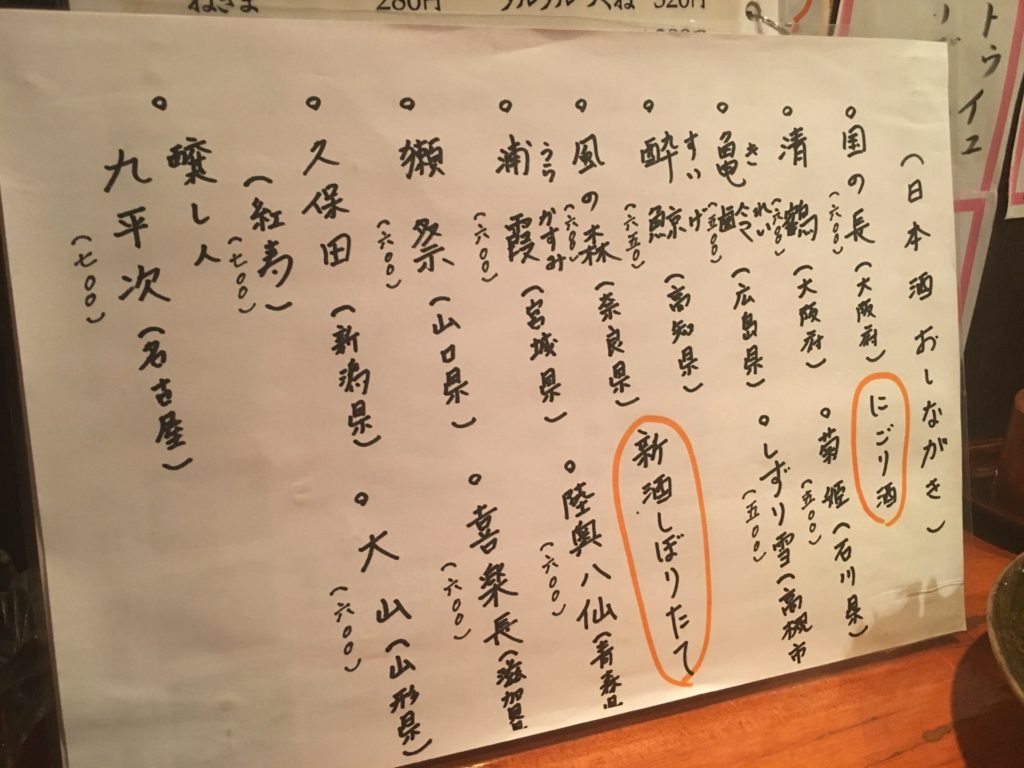 ねぎま 280円
つくね 320円
(日本酒 おしながき)
。国の長(大阪府)
(五〇〇)
。清鶴(大阪府)
。亀齢(広島県)
きれい
(五〇〇)
。酔鯨(高知県)
すいげい
(六五〇)
。風の森(奈良県)
。浦霞(宮城県)
うらかすみ
(六〇〇)
。獺祭(山口県)
(六〇〇)
。久保田(新潟県)
(紅寿)
(七〇〇)
。醸し人
九平次(名古屋)
(七〇〇)
にごり酒
。菊姫(石川県)
(五〇〇)
。しずり雪(高槻市
(五〇〇)
新酒しぼりたて
。陸奥八仙(青森県
(六〇〇)
。喜楽長(滋賀県
(六〇〇)
。大山(山形県)
(六〇〇)
トゥイユ